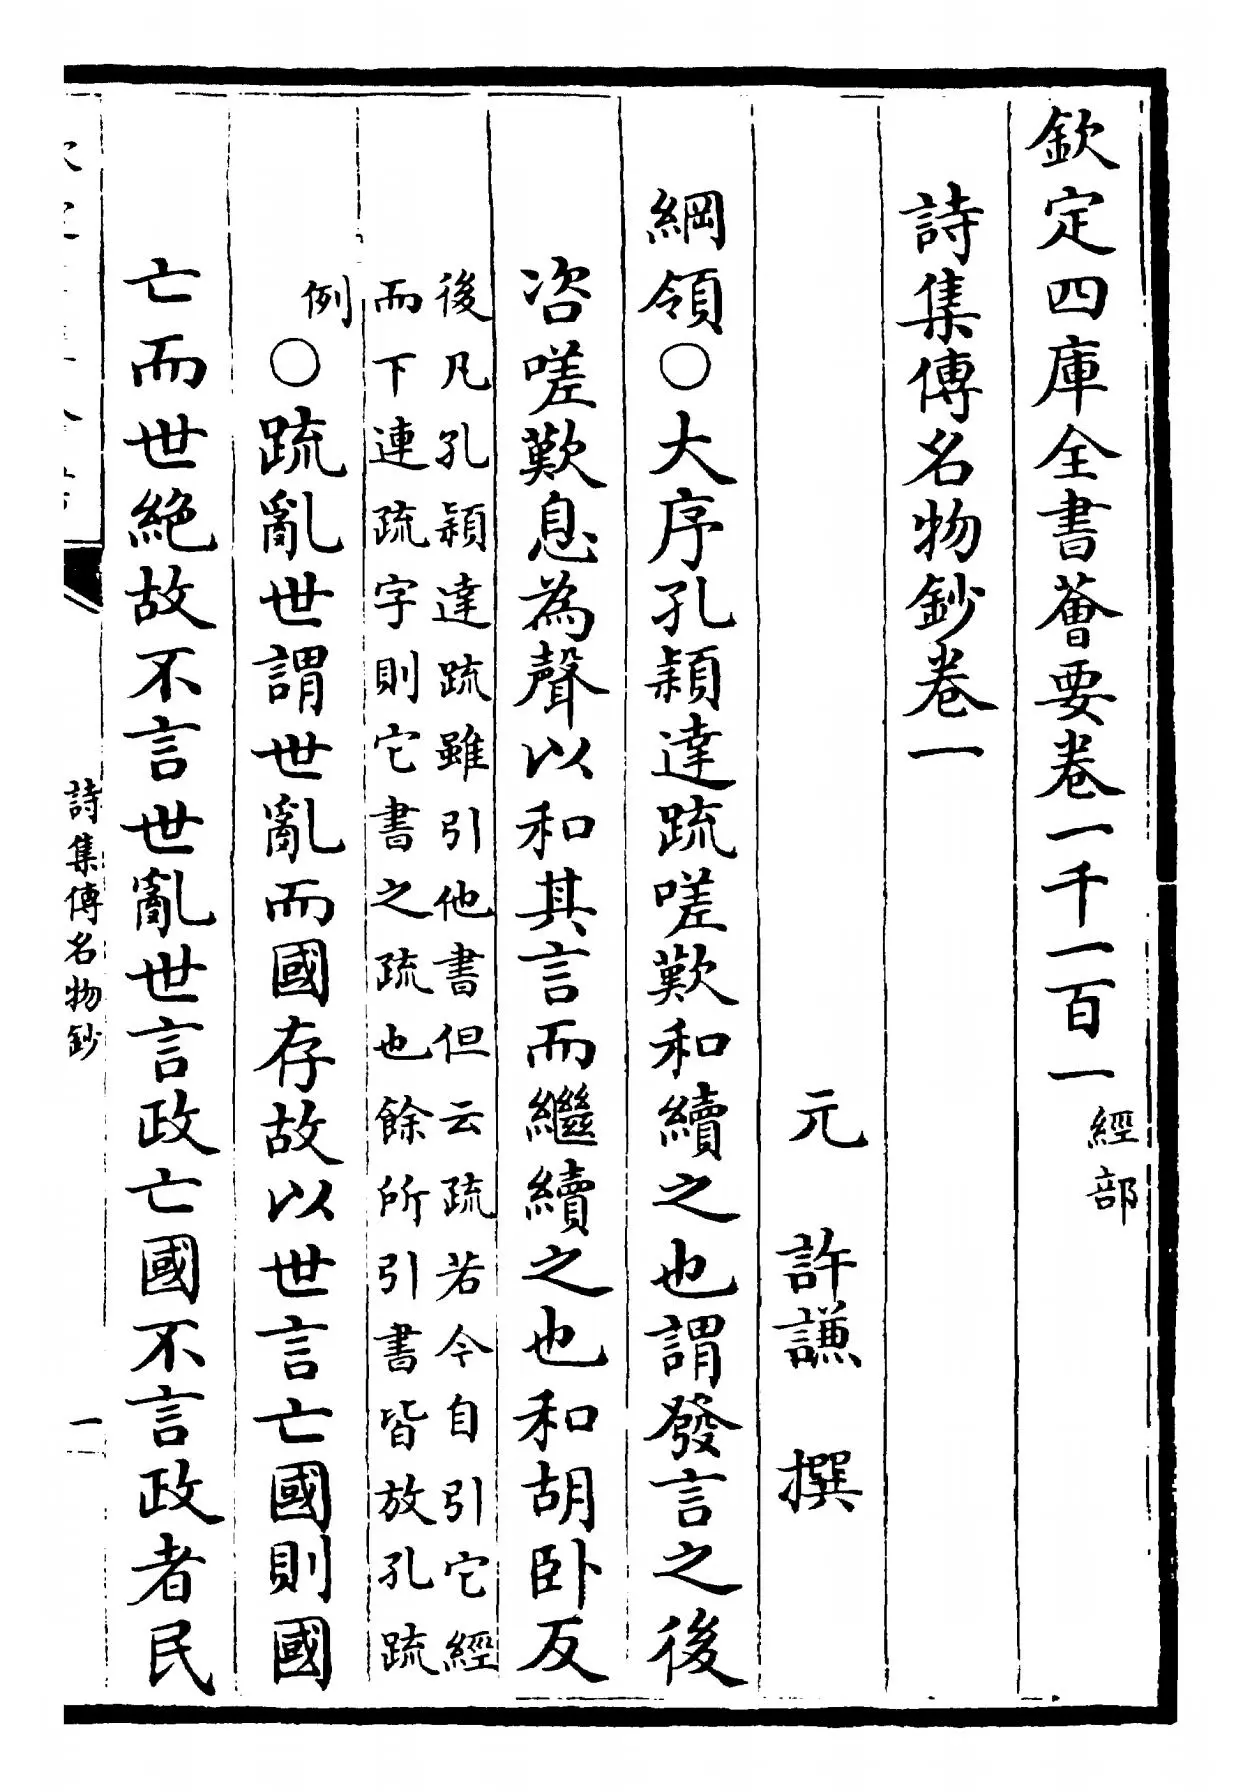 欽定四庫全書薈要卷一千一百一 經部
詩集傳名物鈔卷一
元 許謙 撰
綱領○大序孔穎達疏嗟歎和續之也謂發言之後
咨嗟歎息為聲以和其言而繼續之也和胡卧反
後凡孔穎達疏雖引他書但云疏若今自引它經
而下連疏字則它書之疏也餘所引書皆放孔疏
例○疏亂世謂世亂而國存故以世言亡國則國
亡而世絶故不言世亂世言政亡國不言政者民
詩集傳名物鈔
一